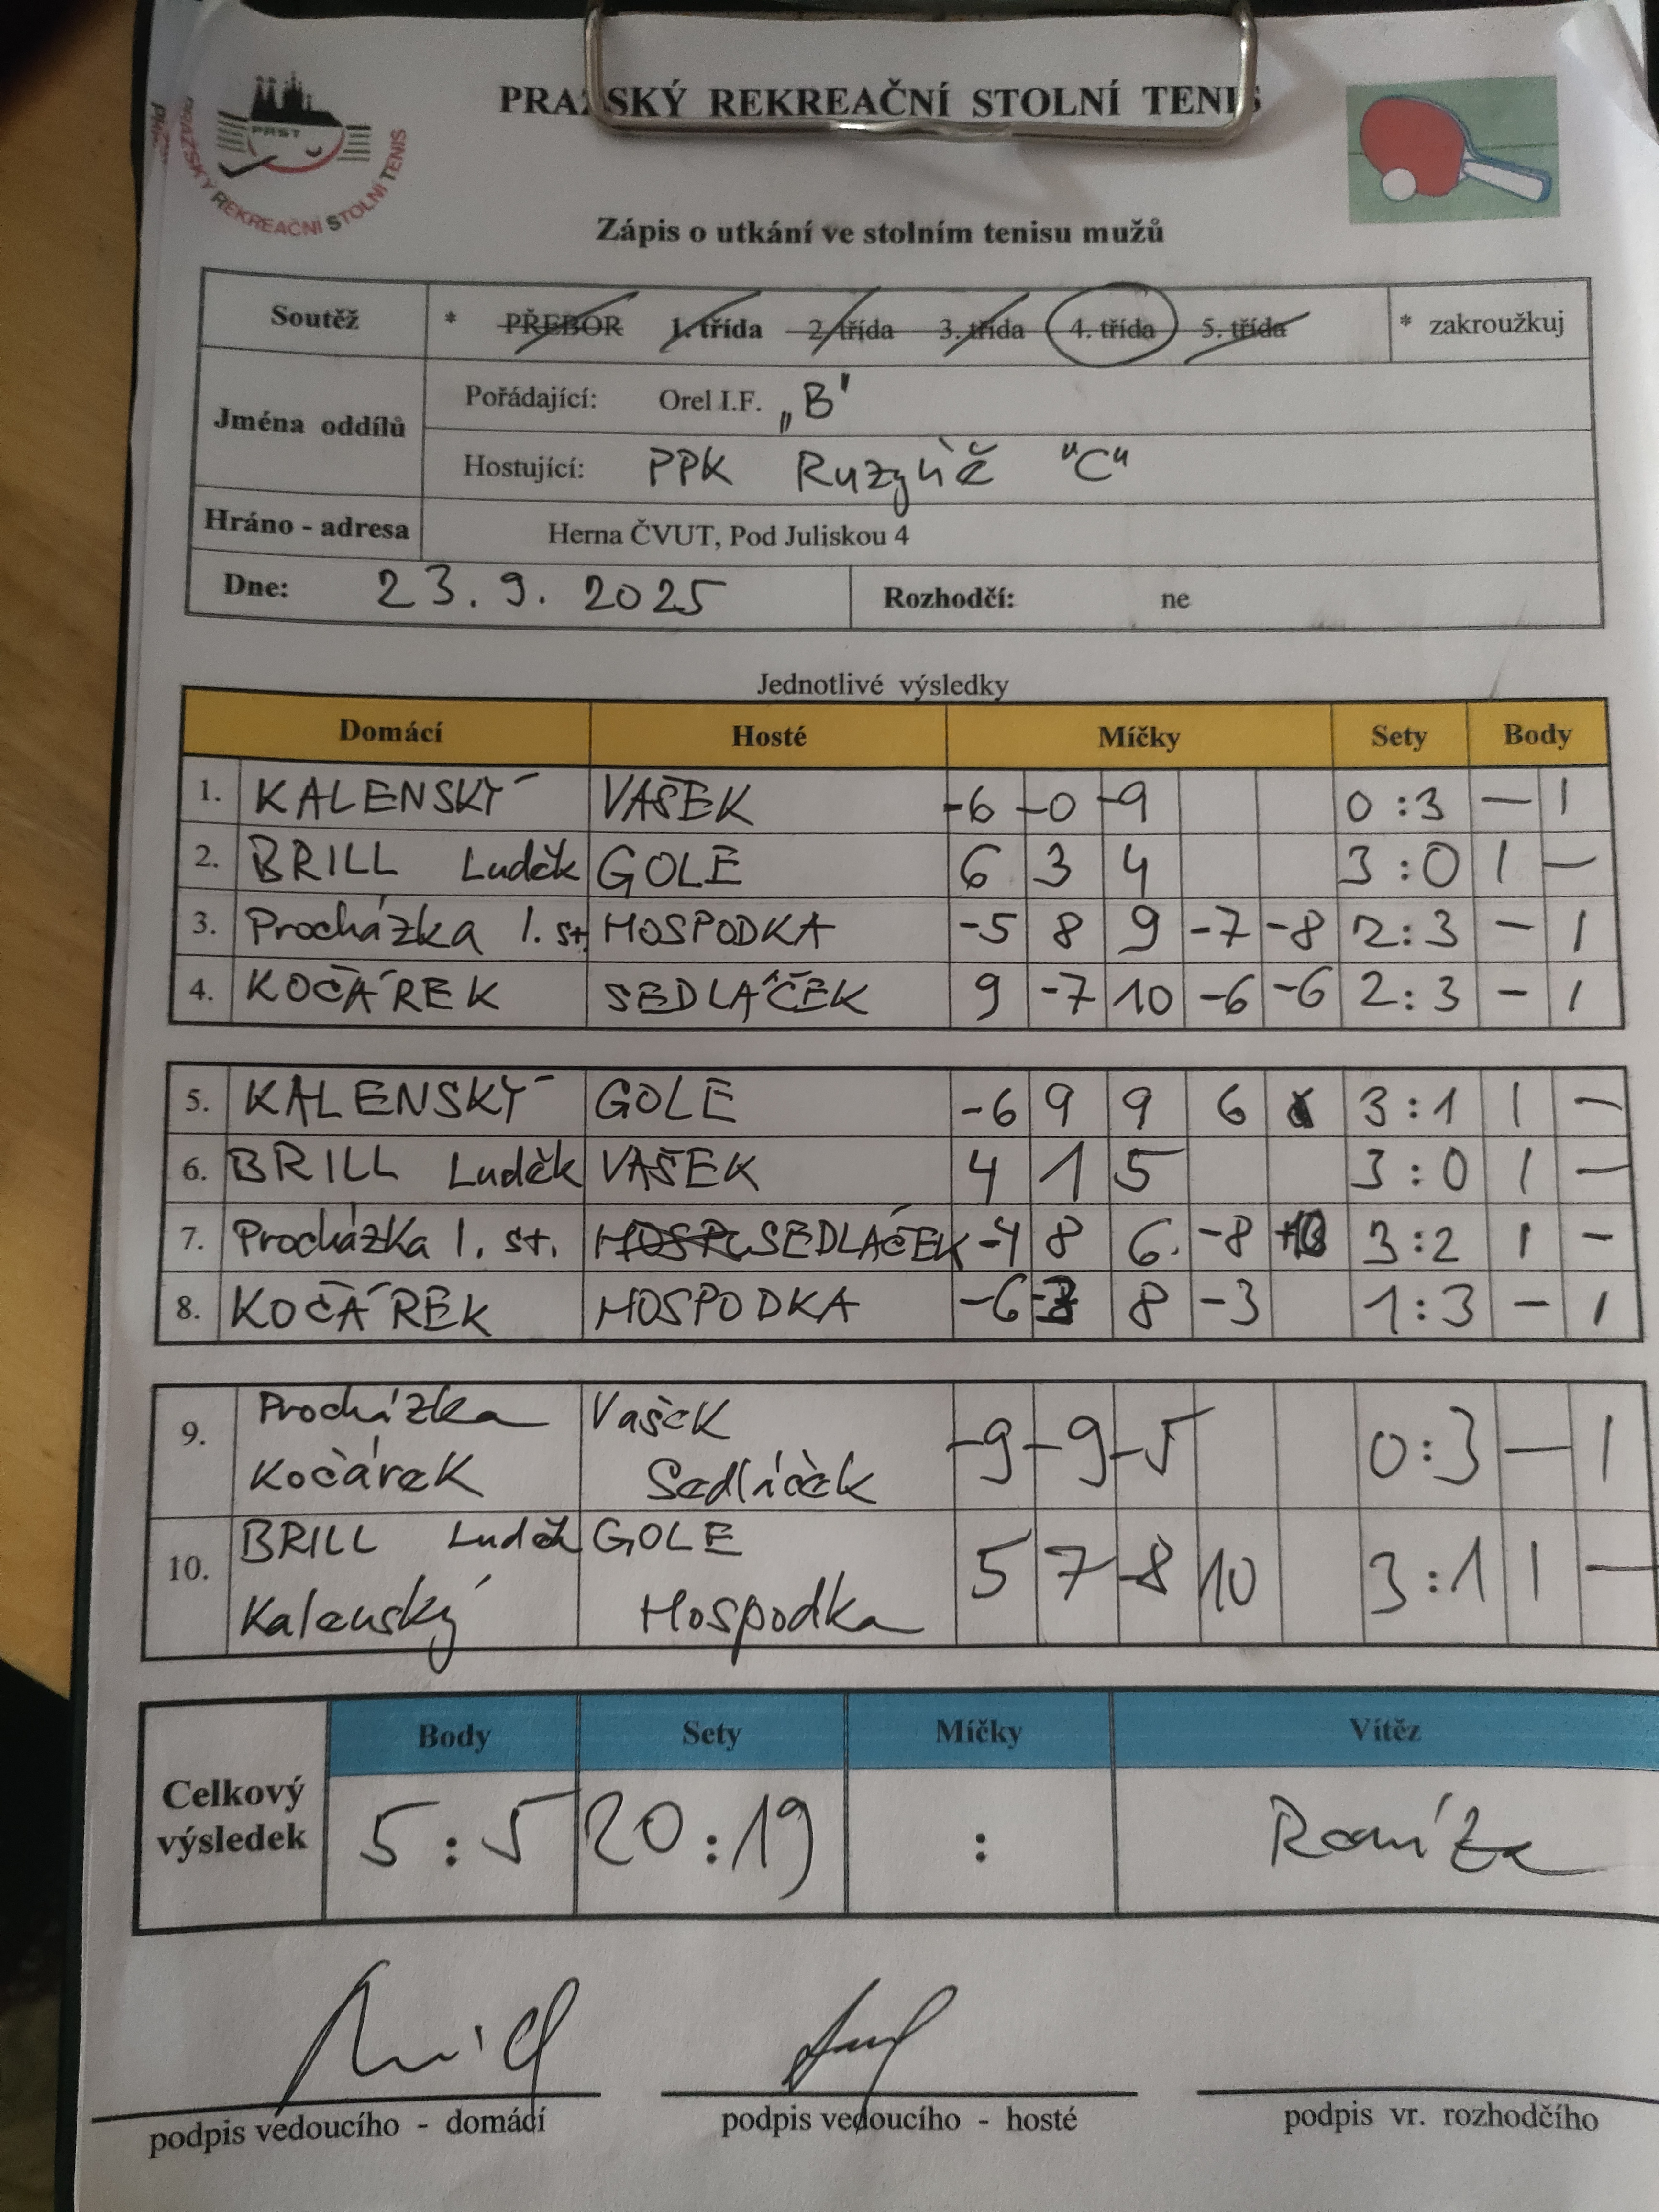 PRAŽSKÝ REKREAČNÍ STOLNÍ TENIS
PRST
PRAŽSKÝ REKREAČNÍ STOLNÍ TENIS
Zápis o utkání ve stolním tenisu mužů
Soutěž * PŘEBOR 1. třída 2. třída 3. třída 4. třída 5. třída * zakroužkuj
Jména oddílů
Pořádající: Orel I.F. „B"
Hostující: PPK Ruzyně "C"
Hráno - adresa Herna ČVUT, Pod Juliskou 4
Dne: 23. 9. 2025 Rozhodčí: ne
Jednotlivé výsledky
Domácí Hosté Míčky Sety Body
1. KALENSKÝ VAŠEK -6 -0 -9 0:3 — 1
2. BRILL Luděk GOLE 6 3 4 3:0 1 —
3. Procházka I. st. HOSPODKA -5 8 9 -7 -8 2:3 - 1
4. KOČÁREK SEDLÁČEK 9 -7 10 -6 -6 2:3 - 1
5. KALENSKÝ GOLE -6 9 9 6 3:1 1 —
6. BRILL Luděk VAŠEK 4 1 5 3:0 1 —
7. Procházka I. st. SEDLÁČEK -4 8 6 -8 3:2 1 -
8. KOČÁREK HOSPODKA -6 8 -3 1:3 - 1
9. Procházka Vašek -9 -9 -5 0:3 — 1
Kočárek Sedláček
10. BRILL Luděk GOLE 5 7 -8 10 3:1 1 —
Kalenský Hospodka
Body Sety Míčky Vítěz
Celkový výsledek 5:5 20:19 : Remíza
podpis vedoucího - domácí podpis vedoucího - hosté podpis vr. rozhodčího